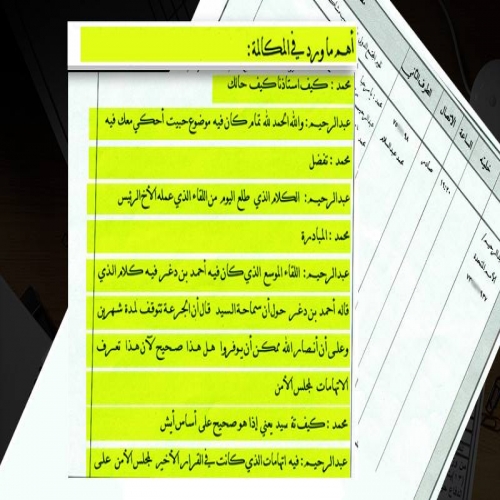 أهم ما ورد في المكالمة:
محمد : كيف استاذنا كيف حالك
عبدالرحيم: والله الحمد لله تمام كان فيه موضوع حبيت أحكي معك فيه
محمد : تفضل
عبدالرحيم: الكلام الذي طلع اليوم من اللقاء الذي عمله الأخ الرئيس
محمد : المبادرة
عبدالرحيم: اللقاء الموسع الذي كان فيه أحمد بن دغر فيه كلام الذي
قاله أحمد بن دغر حول أن سماحة السيد قال أن الجرعة تتوقف لمدة شهرين
وعلى أن أنصار الله ممكن أن يوفروا هل هذا صحيح لأن هذا تعرف
الاتهامات لمجلس الأمن
محمد : كيف نة سيد يعني إذا هو صحيح على أساس أيش
عبدالرحيم: فيه اتهامات الذي كانت في القرار الأخير لمجلس الأمن على
الطرف الثاني
الساعة
الاتصال
خلية
صادر